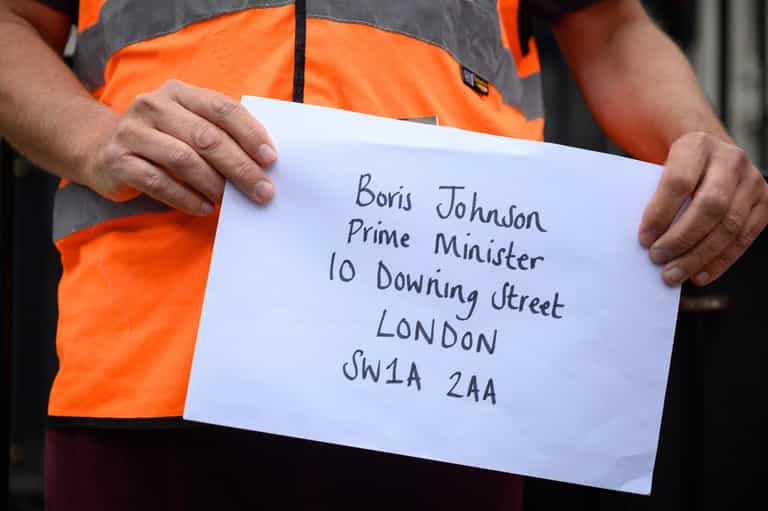 Boris Johnson
Prime Minister
10 Downing Street
LONDON
SW1A 2AA